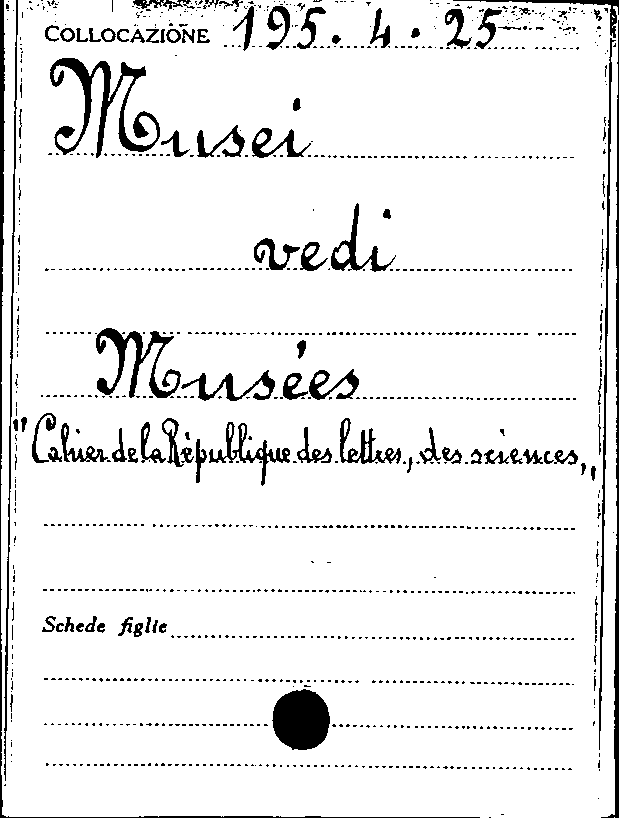 COLLOCAZIONE 195. 4. 25
Musei
vedi
Musées
"Cahier de la République des lettres, des sciences,,
Schede figlie